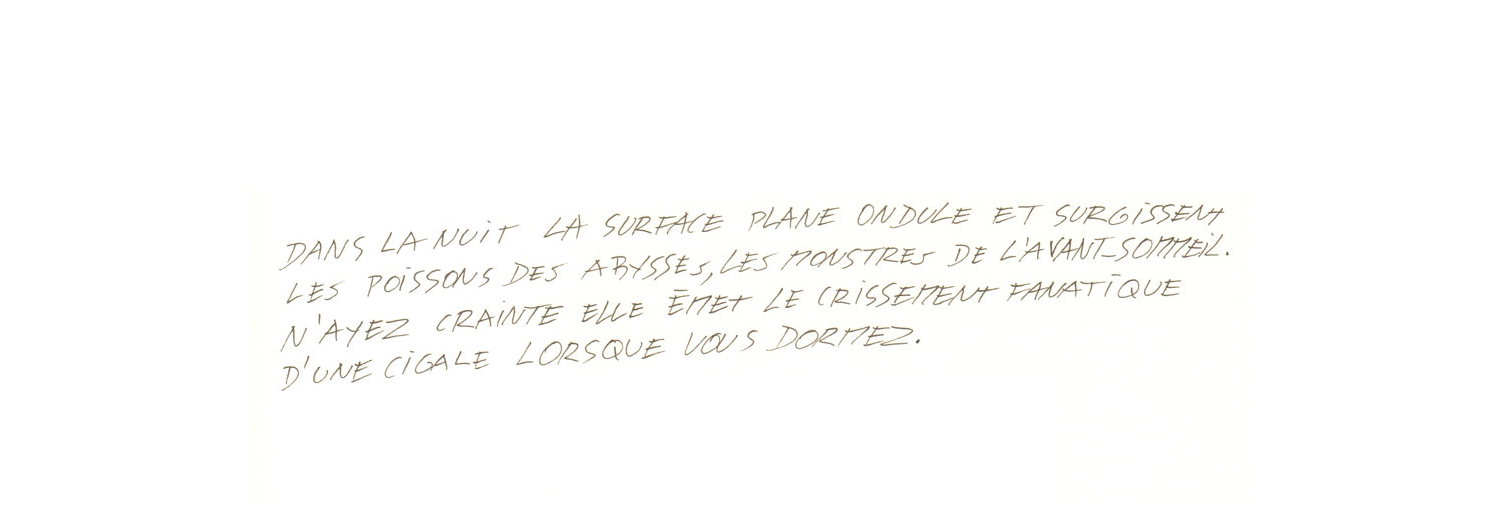 DANS LA NUiT LA SURFACE PLANE ONDULE ET SURGiSSENt
LES POiSSONS DES ABYSSES, LES MONSTRES DE L'AVANT-SOMMEiL.
N'AYEZ CRAiNTE ELLE ÉMEt LE CRiSSEMENt FANATiQUE
D'UNE CiGALE LORSQUE VOUS DORMEZ.